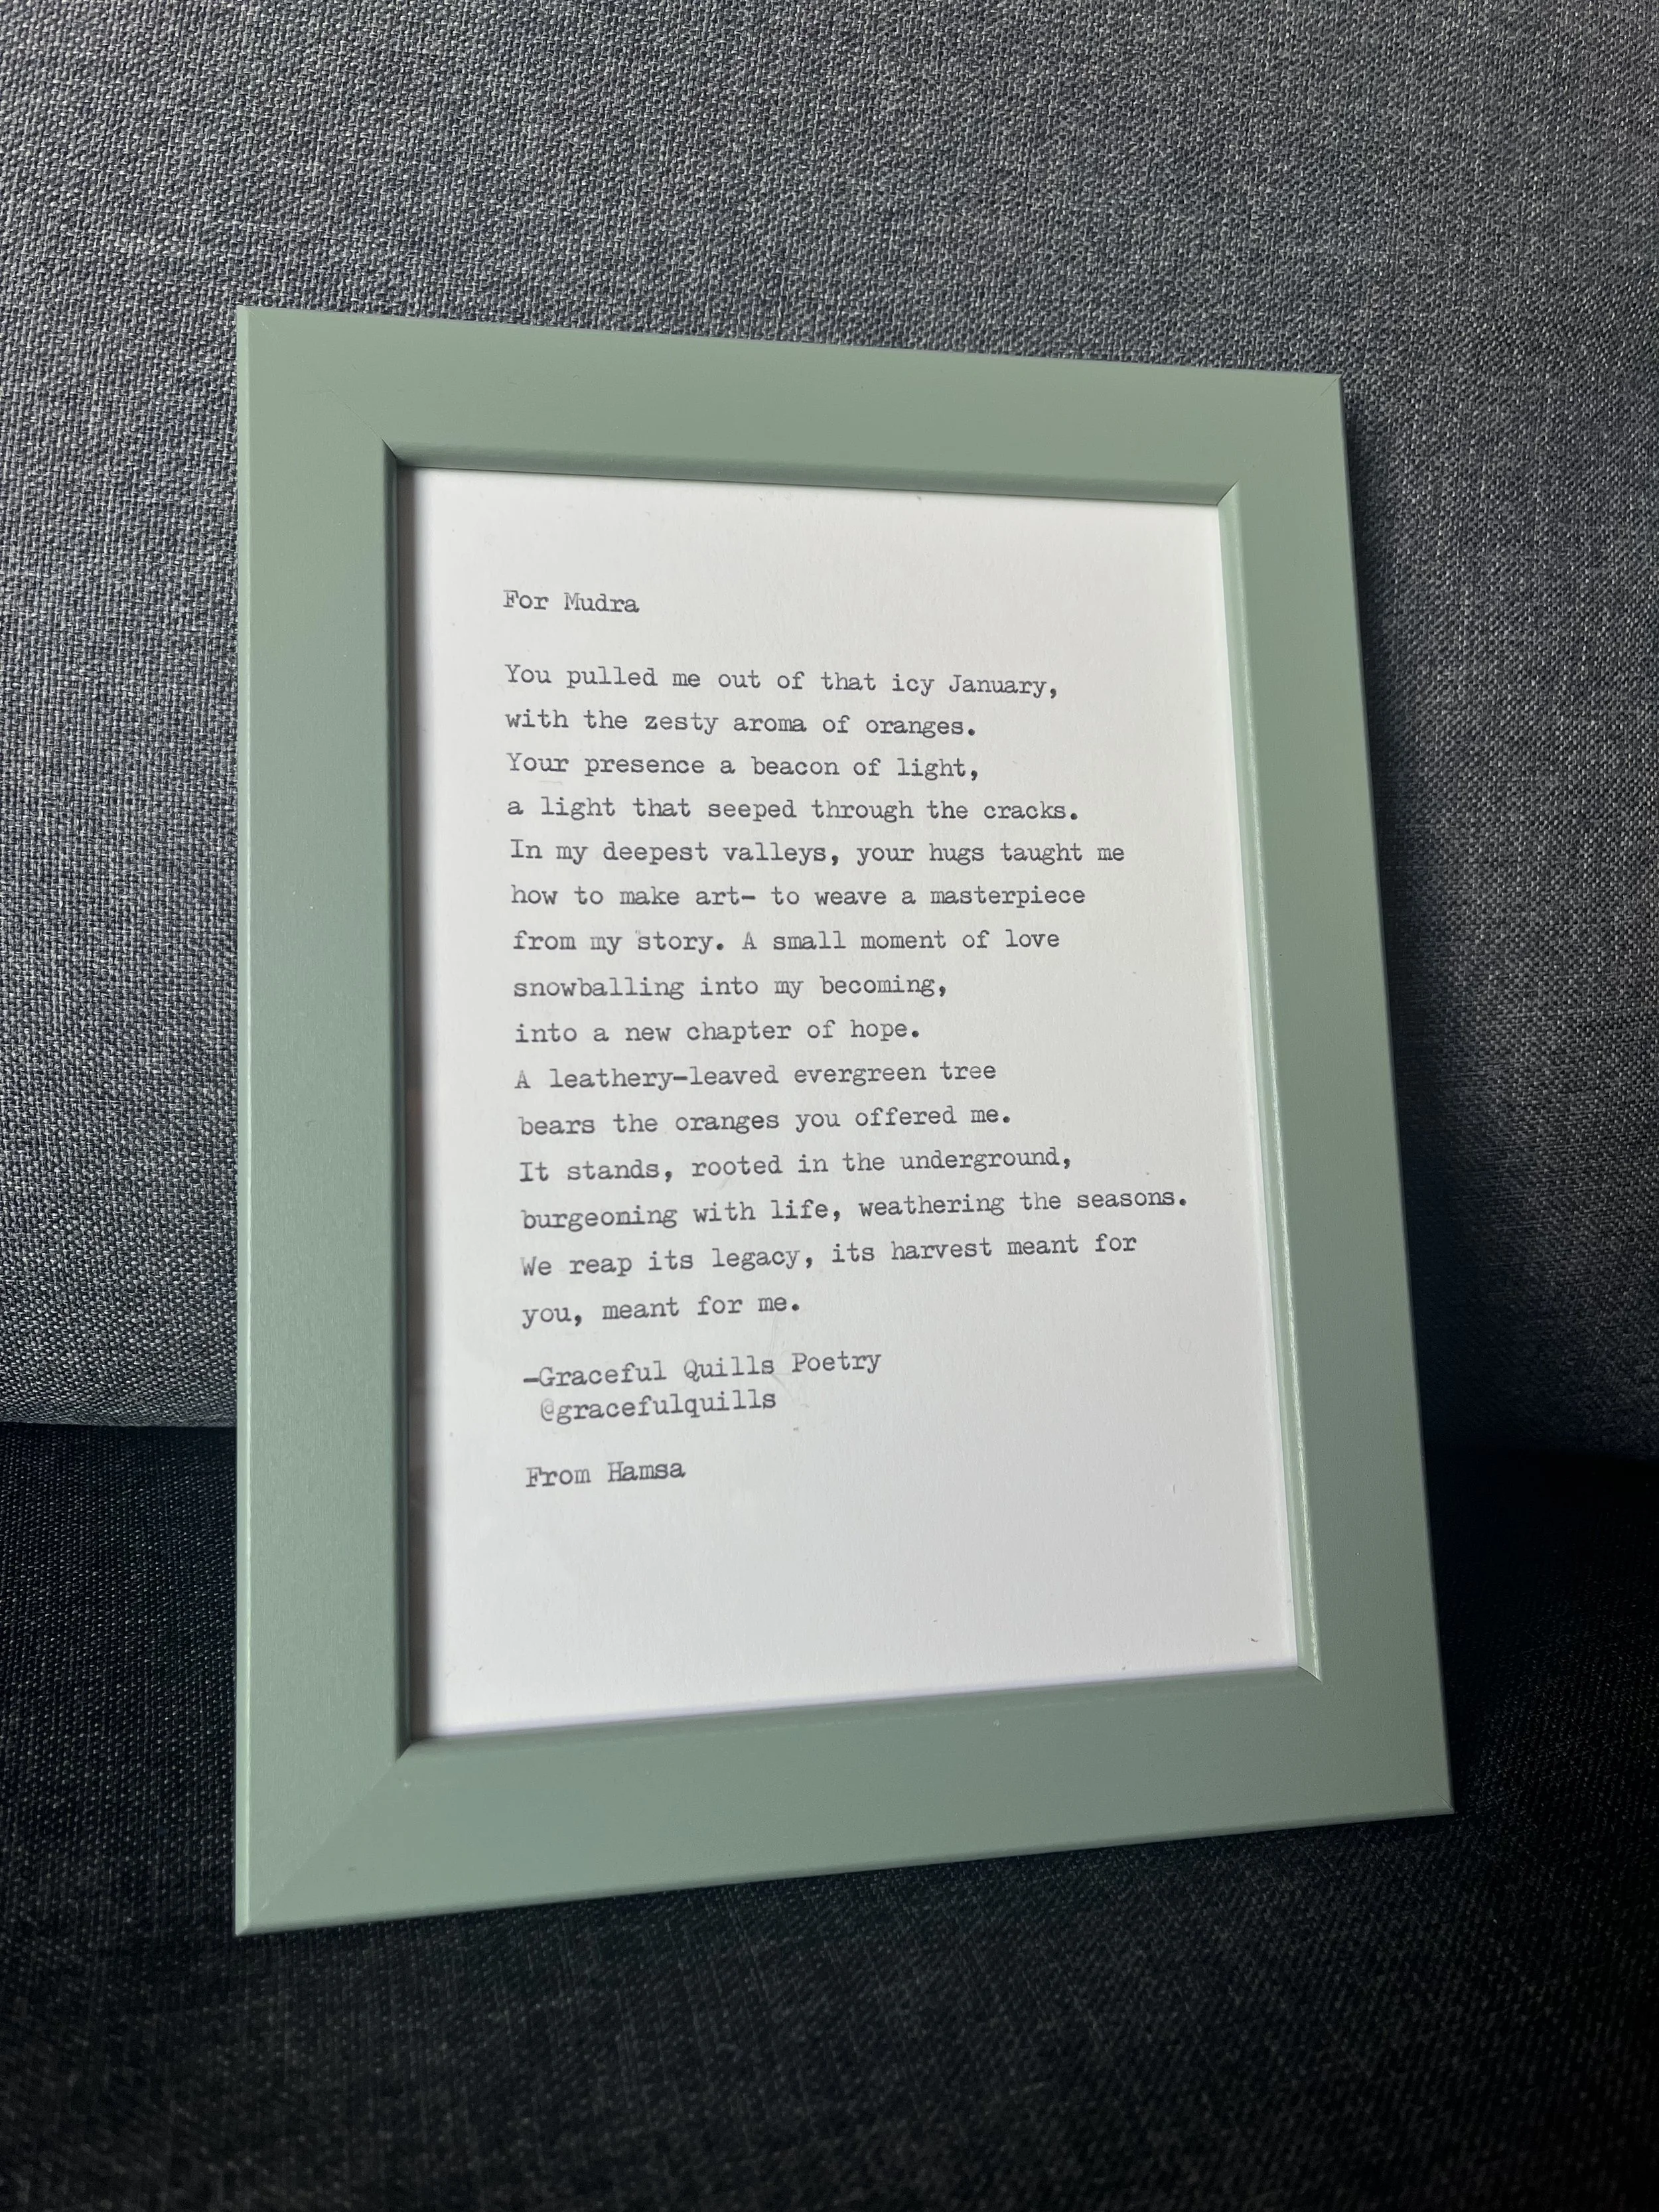 For Mudra
You pulled me out of that icy January,
with the zesty aroma of oranges.
Your presence a beacon of light,
a light that seeped through the cracks.
In my deepest valleys, your hugs taught me
how to make art- to weave a masterpiece
from my story. A small moment of love
snowballing into my becoming,
into a new chapter of hope.
A leathery-leaved evergreen tree
bears the oranges you offered me.
It stands, rooted in the underground,
burgeoning with life, weathering the seasons.
We reap its legacy, its harvest meant for
you, meant for me.
-Graceful Quills Poetry
@gracefulquills
From Hamsa